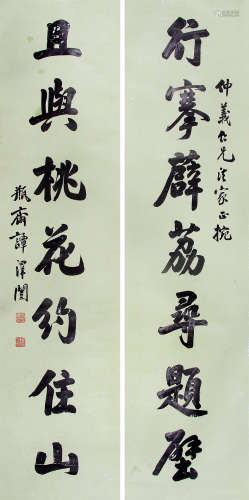 行搴薜荔尋題壁
仲義仁兄法家正腕
且與桃花約住山
瓶齋譚澤闓